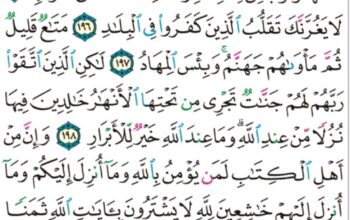 لَا يَغُرَّنَّكَ تَقَلُّبُ ٱلَّذِينَ كَفَرُوا۟ فِى ٱلْبِلَٰدِ ١٩٦ مَتَٰعٌ قَلِيلٌ
ثُمَّ مَأْوَىٰهُمْ جَهَنَّمُ ۚ وَبِئْسَ ٱلْمِهَادُ ١٩٧ لَٰكِنِ ٱلَّذِينَ ٱتَّقَوْا۟
رَبَّهُمْ لَهُمْ جَنَّٰتٌ تَجْرِى مِن تَحْتِهَا ٱلْأَنْهَٰرُ خَٰلِدِينَ فِيهَا
نُزُلًا مِّنْ عِندِ ٱللَّهِ ۗ وَمَا عِندَ ٱللَّهِ خَيْرٌ لِّلْأَبْرَارِ ١٩٨ وَإِنَّ مِنْ
أَهْلِ ٱلْكِتَٰبِ لَمَن يُؤْمِنُ بِٱللَّهِ وَمَآ أُنزِلَ إِلَيْكُمْ وَمَآ
أُنزِلَ إِلَيْهِمْ خَٰشِعِينَ لِلَّهِ لَا يَشْتَرُونَ بِـَٔايَٰتِ ٱللَّهِ ثَمَنًا